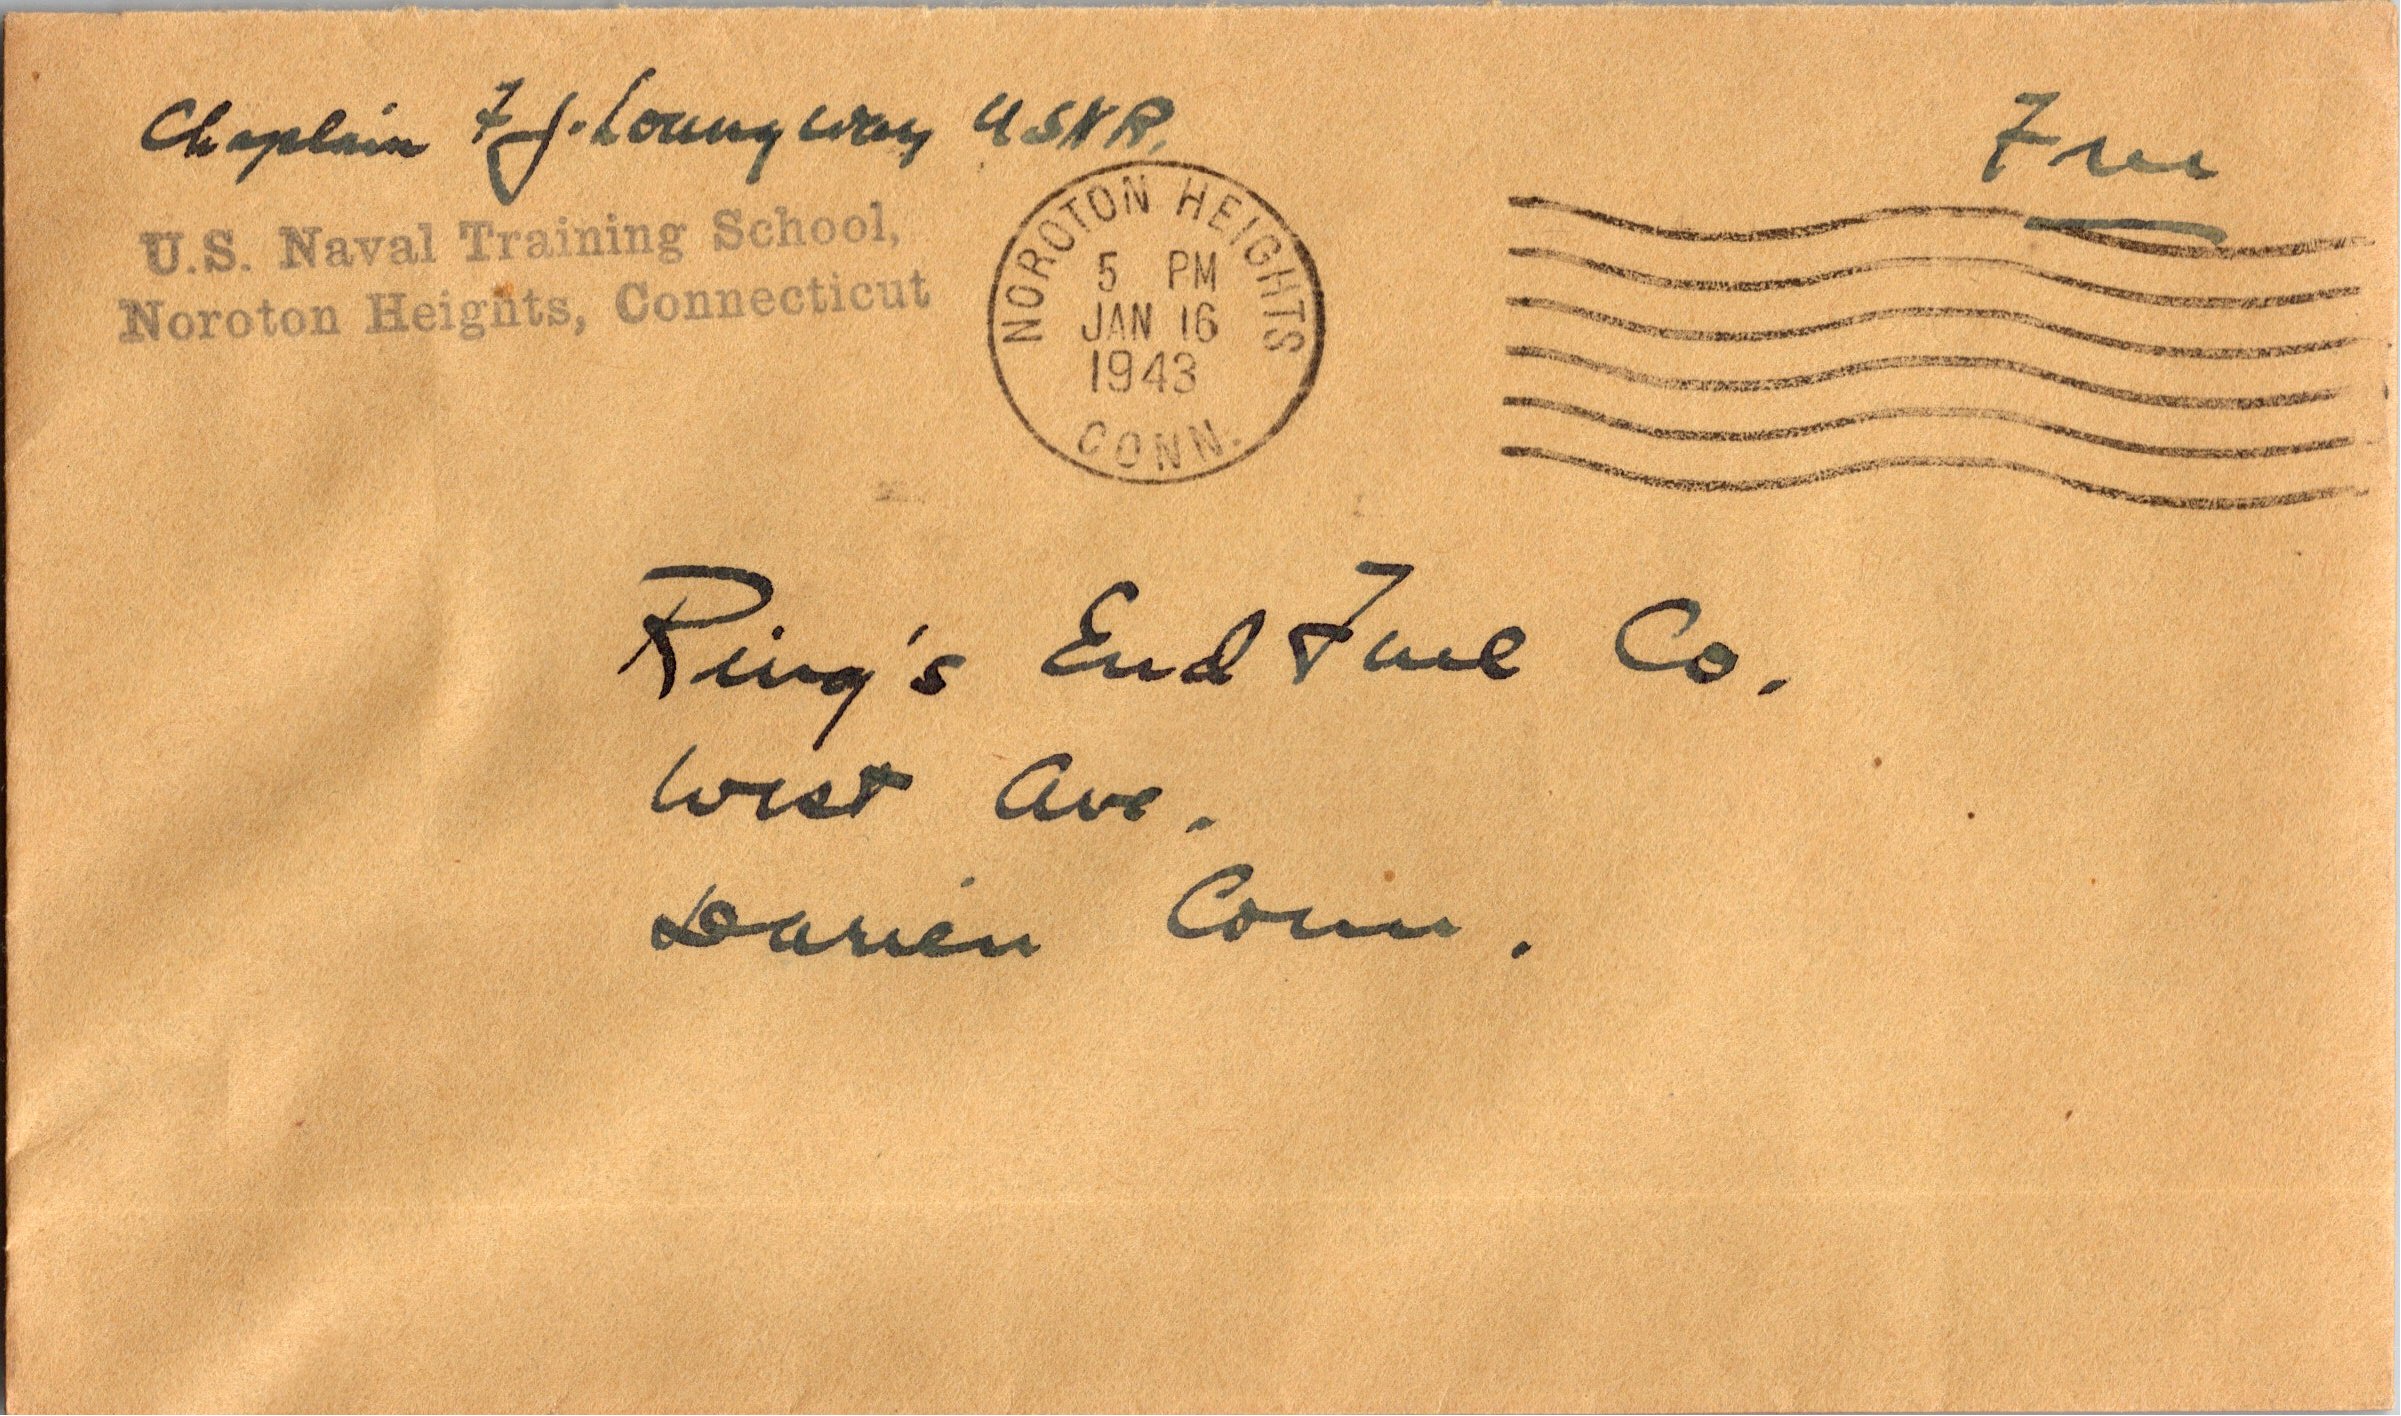 Chaplain F.J. Loungway USNR,
Free
U.S. Naval Training School,
Noroton Heights, Connecticut
NOROTON HEIGHTS
5 PM
JAN 16
1943
CONN.
Ring's End Fuel Co.
West Ave.
Darien Conn.